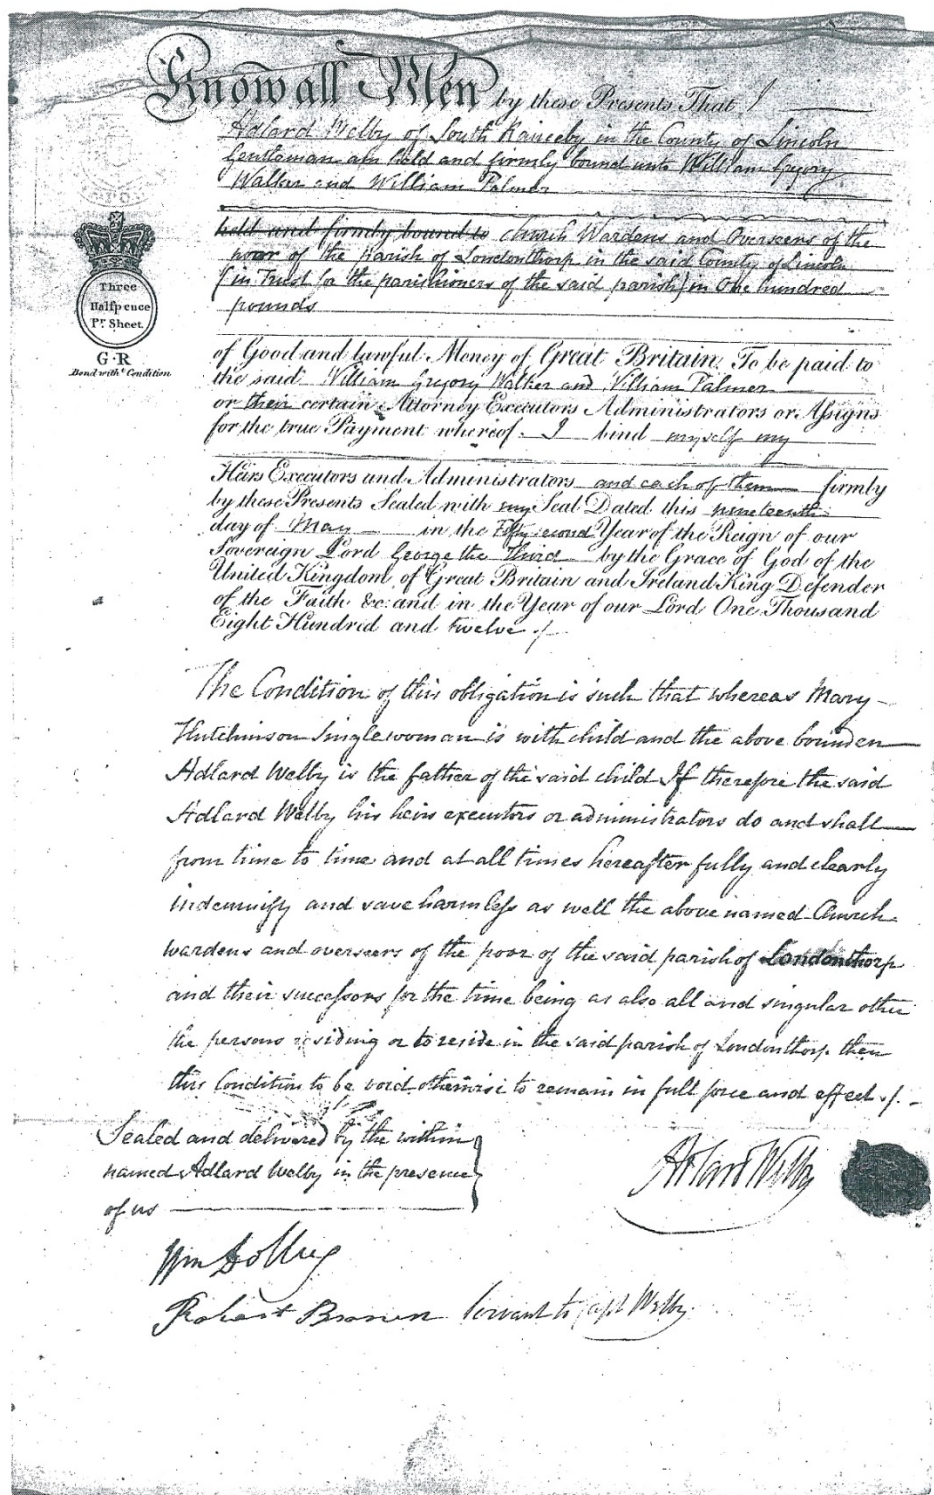 Know all Men by these Presents That I
Adlard Welby of South Rauceby in the County of Lincoln
Gentleman am held and firmly bound unto William Gregory
Walker and William Palmer
held and firmly bound to Church Wardens and Overseers of the
poor of the Parish of Londonthorp in the said County of Lincoln
(in Trust for the parishioners of the said parish) in One hundred
pounds
Three
Halfpence
Pr Sheet.
G·R
Bond with Condition
of Good and lawful Money of Great Britain. To be paid to
the said William Gregory Walker and William Palmer
or their certain Attorney Executors Administrators or Assigns
for the true Payment whereof I bind myself my
Heirs Executors and Administrators and each of them firmly
by these Presents Sealed with my Seal Dated this nineteenth
day of May in the Fifty second Year of the Reign of our
Sovereign Lord George the Third by the Grace of God of the
United Kingdom of Great Britain and Ireland King Defender
of the Faith &c. and in the Year of our Lord One Thousand
Eight Hundred and twelve ./
The Condition of this obligation is such that whereas Mary
Hutchinson Singlewoman is with child and the above bounden
Adlard Welby is the father of the said child If therefore the said
Adlard Welby his heirs executors or administrators do and shall
from time to time and at all times hereafter fully and clearly
indemnify and save harmless as well the above named Church
wardens and overseers of the poor of the said parish of Londonthorp
and their successors for the time being as also all and singular other
the persons residing or to reside in the said parish of Londonthorp then
this Condition to be void otherwise to remain in full force and effect ./.
Sealed and delivered by the within
named Adlard Welby in the presence
of us
Adlard Welby
Wm
Robert Brown Servant to Capt Welby